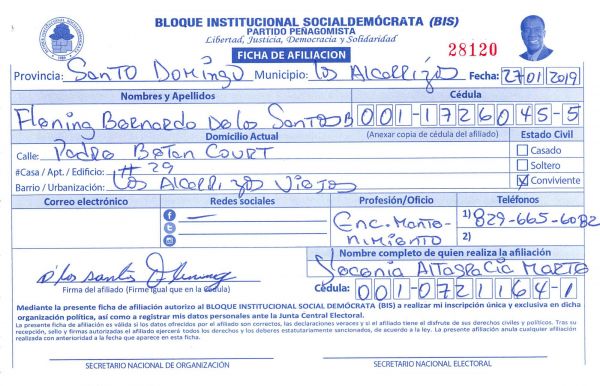 BLOQUE INSTITUCIONAL SOCIALDEMÓCRATA (BIS)
PARTIDO PEÑAGOMISTA
Libertad, Justicia, Democracia y Solidaridad
FICHA DE AFILIACION
28120
Provincia: Santo Domingo Municipio: Los Alcarrizos Fecha: 27/01/2019
Nombres y Apellidos Cédula
Fleming Bernardo De los Santos B 001-1726045-5
Domicilio Actual (Anexar copia de cédula del afiliado) Estado Civil
Calle: Pedro Betan Court Casado
#Casa / Apt. / Edificio: # 29 Soltero
Barrio / Urbanización: Los Alcarrizos Viejos Conviviente
Correo electrónico Redes sociales Profesión/Oficio Teléfonos
Enc. Mante- 1) 829-665-6082
nimiento 2)
Nombre completo de quien realiza la afiliación
Altagracia Marte
Firma del afiliado (Firme igual que en la cédula) Cédula: 001-0721164-1
Mediante la presente ficha de afiliación autorizo al BLOQUE INSTITUCIONAL SOCIAL DEMÓCRATA (BIS) a realizar mi inscripción única y exclusiva en dicha
organización política, así como a registrar mis datos personales ante la Junta Central Electoral.
La presente ficha de afiliación es válida si los datos ofrecidos por el afiliado son correctos, las declaraciones veraces y si el afiliado tiene el disfrute de sus derechos civiles y políticos. Tras su
recepción, sello y firmas autorizadas el afiliado ejercerá todos los derechos y los deberes estatutariamente sancionados, de acuerdo a la ley. La presente afiliación anula cualquier afiliación
realizada con anterioridad a la fecha que aparece en esta ficha.
SECRETARIO NACIONAL DE ORGANIZACIÓN SECRETARIO NACIONAL ELECTORAL